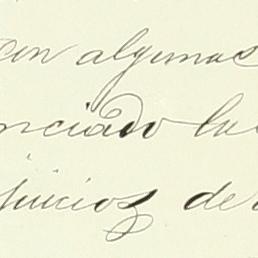 con algunas
nciado la
juicios de